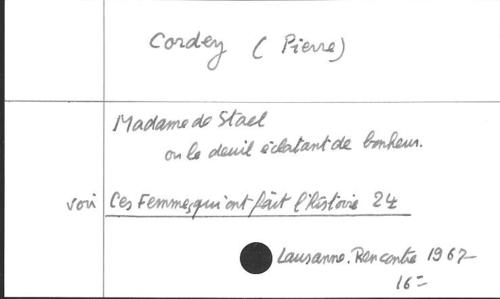 Cordey (Pierre)
Madame de Stael
ou le deuil éclatant de bonheur.
voir Ces Femmes qui ont fait l'histoire 24
Lausanne. Rencontre 1967
16=